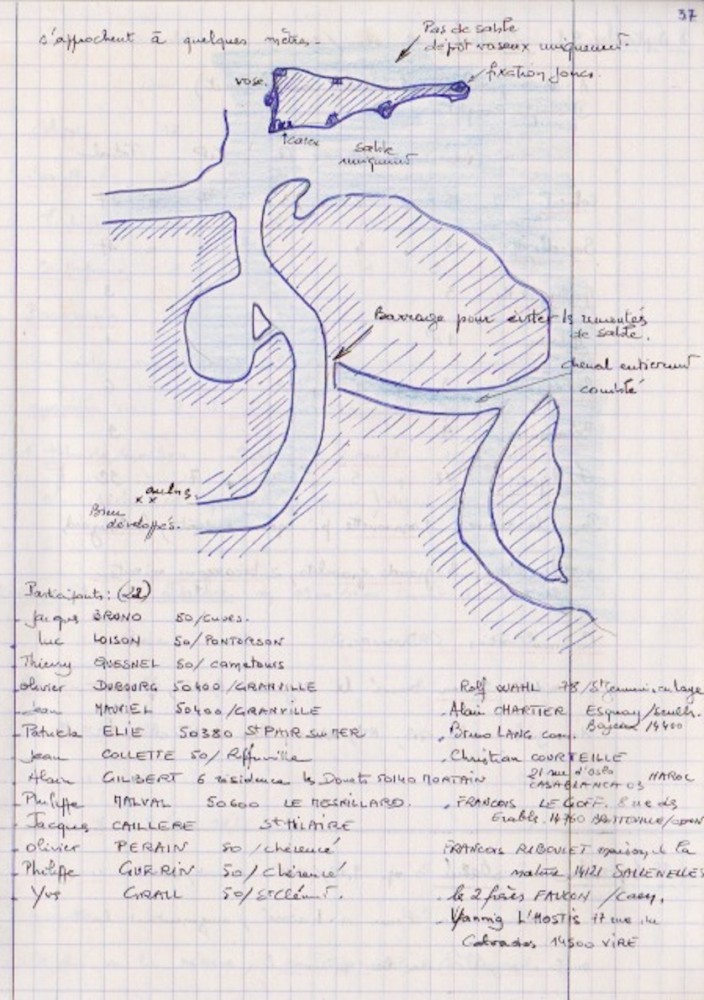 37
s'approchent à quelques mètres.
Pas de sable
dépôt vaseux uniquement.
fixation joncs.
vase.
carex
sable
uniquement
Barrage pour éviter ls remontés
de sable.
chenal entièrement
comblé
aulnes.
x x
Bien
développés.
Participants: (22)
Jacques BRANO 50/Cuves.
Luc LOISON 50/PONTORSON
Thierry QUESNEL 50/ cametours
olivier DUBOURG 50400/GRANVILLE
Jean MAURIEL 50400/GRANVILLE
Patricia ELIE 50380 St PAIR sur MER
Jean COLLETTE 50/ Reffuveille
Alain GILIBERT 6 résidence les Douets 50140 MORTAIN
Philippe MALVAL 50600 LE MESNILLARD.
Jacques CAILLERE St HILAIRE
olivier PERAIN 50 /chérencé
Philippe GUERRIN 50/ Chérencé
Yves GRALL 50/St Clément.
Rolf WAHL 78/St Germain en laye
Alain CHARTIER Esquay/seulles.
Bayeux 14400
Bruno LANG Caen.
Christian COURTEILLE
21 rue d'Oslo MAROC
CASABLANCA 03
FRANCOIS LE GOFF. 8 rue des
Erables. 14760 BRETTEVILLE/ODON
FRANCOIS RIBOULET maison de la
nature 14121 SALLENELLES
les 2 frères FAUCON /Caen.
Yannig L'HOSTIS 17 rue du
Calvados 14500 VIRE